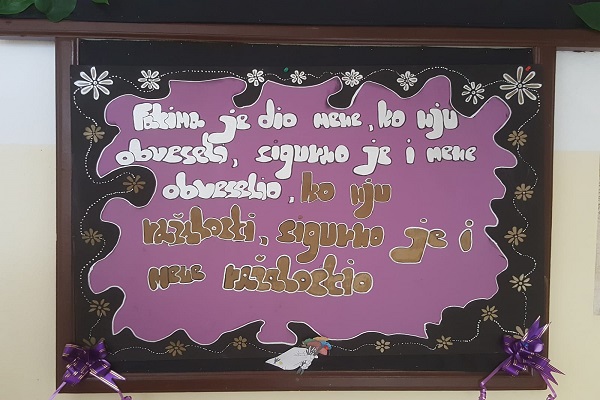 Fatima je dio mene, ko nju
obveseli, sigurno je i mene
obveselio, ko nju
ražalosti, sigurno je i
mene ražalostio